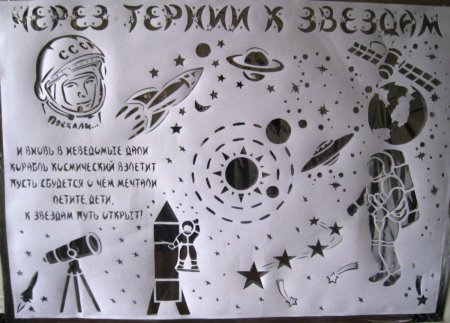 ЧЕРЕЗ ТЕРНИИ К ЗВЕЗДАМ
СССР
ПОЕХАЛИ...
И ВНОВЬ В НЕВЕДОМЫЕ ДАЛИ
КОРАБЛЬ КОСМИЧЕСКИЙ ВЗЛЕТИТ
ПУСТЬ СБУДЕТСЯ О ЧЁМ МЕЧТАЛИ
ЛЕТИТЕ, ДЕТИ,
К ЗВЕЗДАМ ПУТЬ ОТКРЫТ!